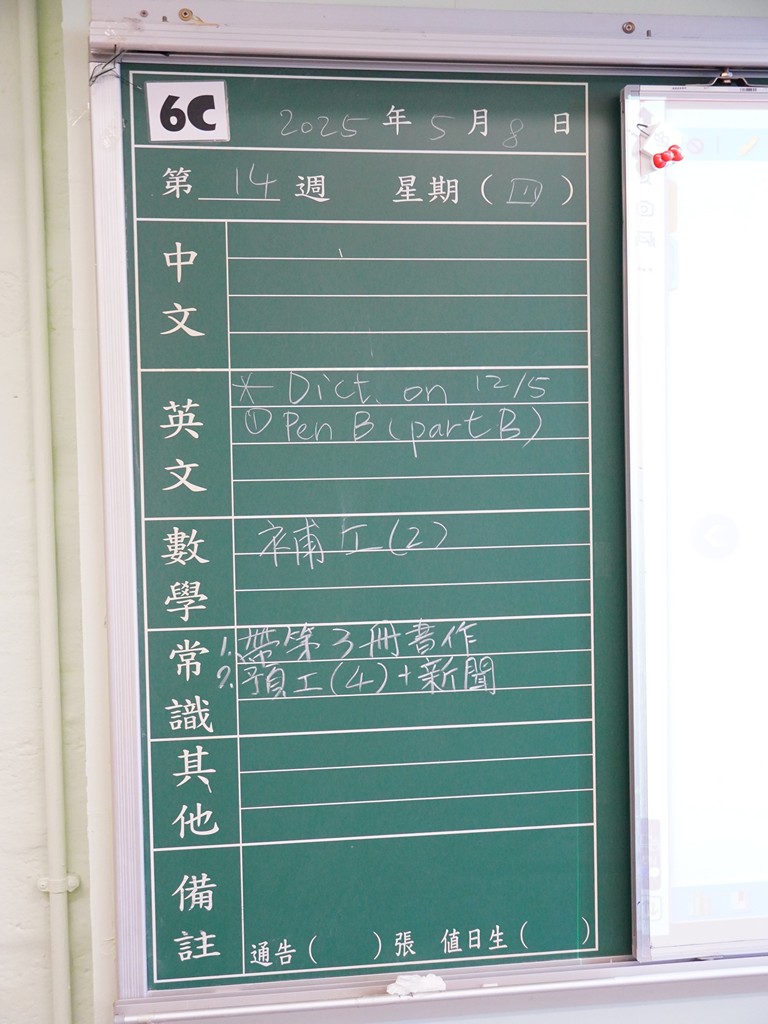 6C 2025 年 5 月 8 日
第 14 週 星期 ( 四 )
中文
英文
* Dict. on 12/5
① Pen B (part B)
數學
補工(2)
常識
1. 帶第3冊書作
2. 預工(4)+新聞
其他
備註
通告 ( ) 張 值日生 ( )